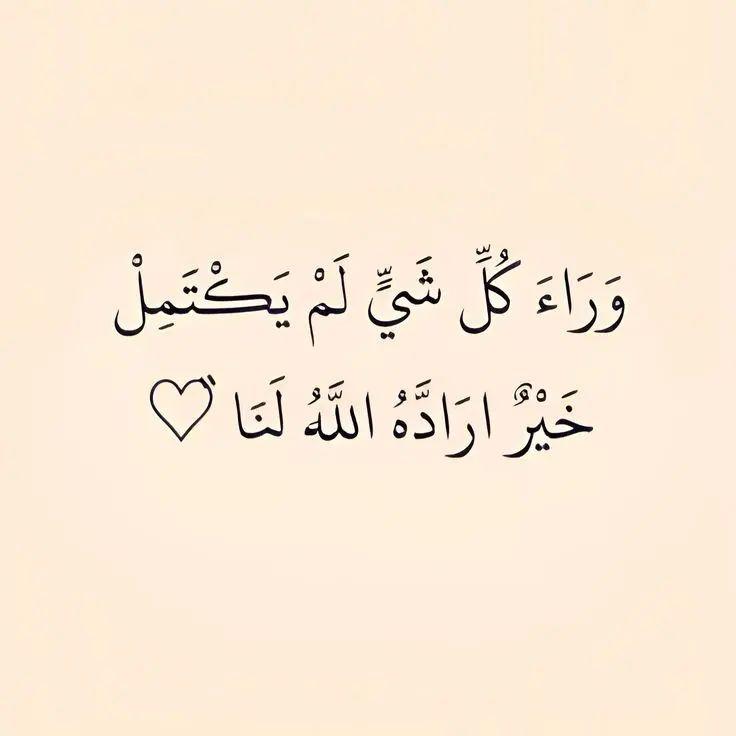 وَرَاءَ كُلِّ شَيٍّ لَمْ يَكْتَمِلْ
خَيْرٌ ارَادَّهُ اللَّهُ لَنَا ♡